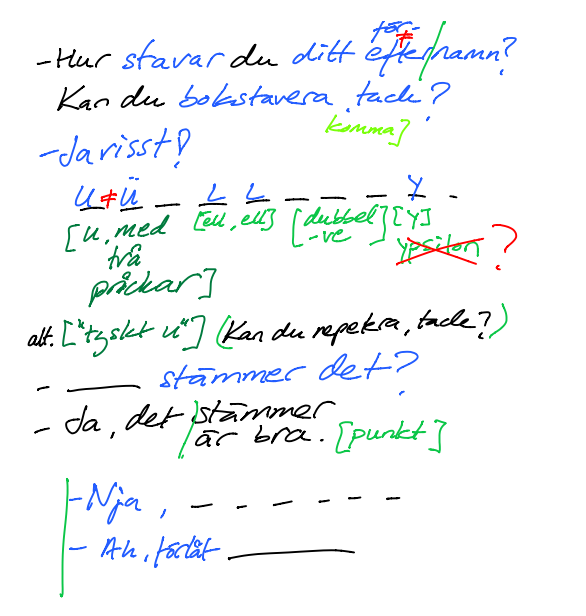 för-
- Hur stavar du ditt efter/namn?
Kan du bokstavera, tack?
komma]
- Javisst!
U ≠ Ü _ L L _ _ _ Y -
[u, med två prickar] [ell, ell] [dubbel-ve] [Y]
ypsilon ?
alt. ["tyskt u"] (Kan du repetera, tack?)
- ____ stämmer det?
- Ja, det / stämmer
är bra. [punkt]
- Nja, _ _ _ _ _ _
- Ah, förlåt ______